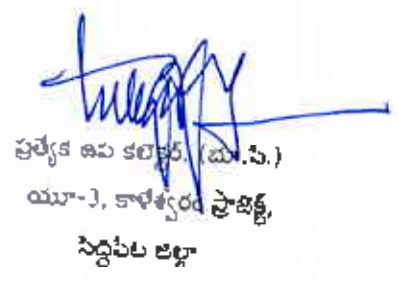 ప్రత్యేక ఉప కలెక్టర్, (భూ.సే.)
యూ-I, కాళేశ్వరం ప్రాజెక్ట్,
సిద్దిపేట జిల్లా